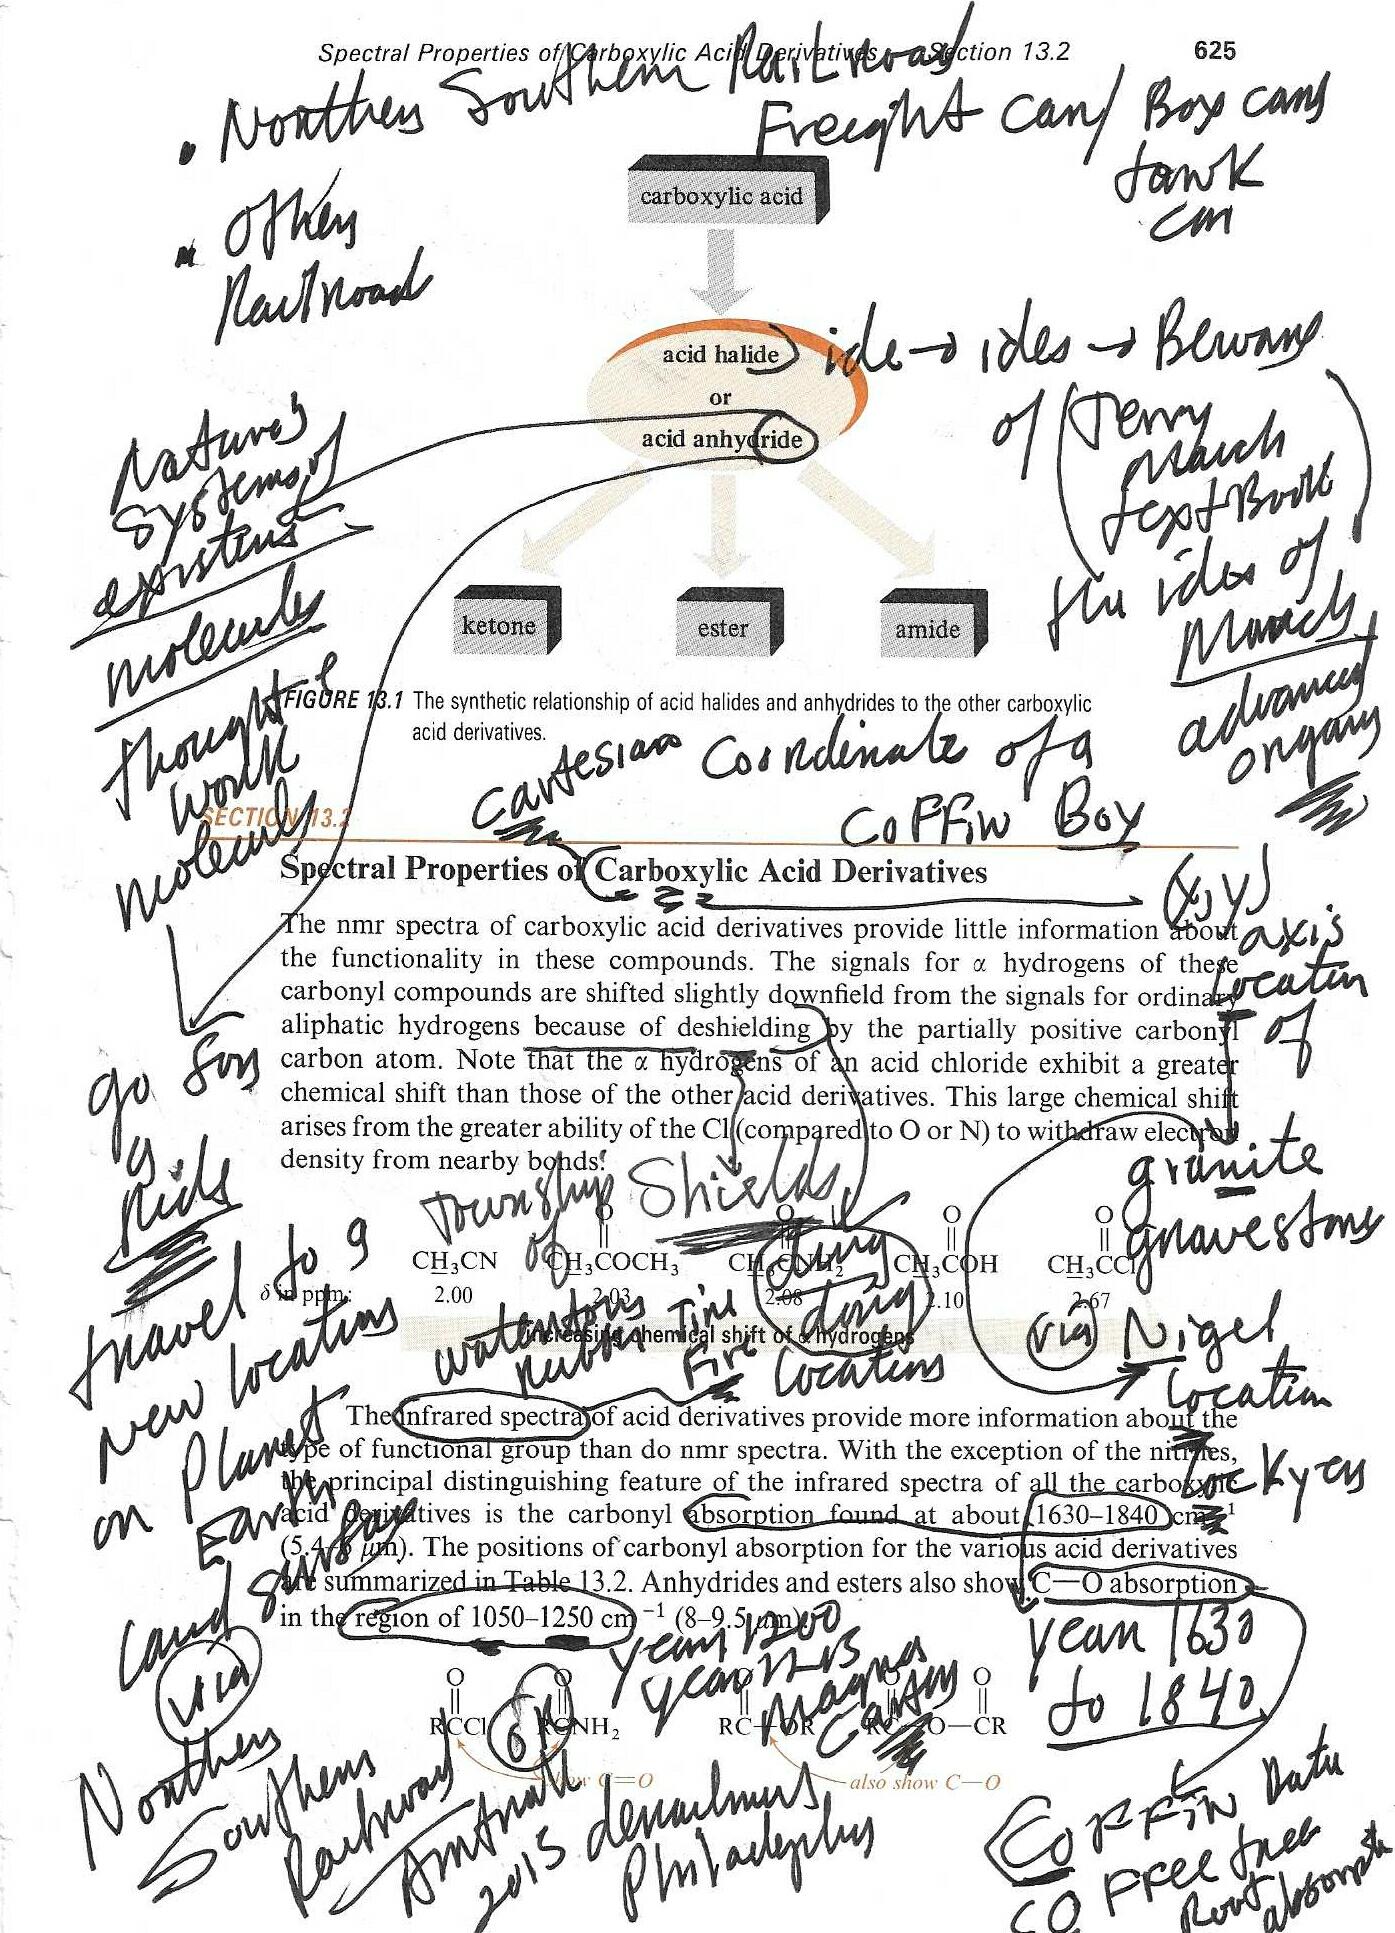 Spectral Properties of Carboxylic Acid Derivatives Section 13.2 625
Northern Southern RailRoad
Freight Car/ Box cars
tank
car
• Others
RailRoad
carboxylic acid
acid halide
or
acid anhydride
ide → ides → Beware
of (Jerry
March
textBook
the ides of
March
advanced
organy
Nature's
systems of
existens
molecules
thought
work
molecules
go for
a
Ride
travel to 9
new locations
on Planet
Earth
Land surface
via
Northern
Southern
Railway or
Amtrak
2015 derailment
Philadelphia
ketone
ester
amide
FIGURE 13.1 The synthetic relationship of acid halides and anhydrides to the other carboxylic
acid derivatives.
cartesian Coordinate of a
CoFFin Box
(x,y)
axis
Location
of
granite
gravestone
via Nigel
Location
Lockyers
SECTION 13.2
Spectral Properties of Carboxylic Acid Derivatives
The nmr spectra of carboxylic acid derivatives provide little information about
the functionality in these compounds. The signals for α hydrogens of these
carbonyl compounds are shifted slightly downfield from the signals for ordinary
aliphatic hydrogens because of deshielding by the partially positive carbonyl
carbon atom. Note that the α hydrogens of an acid chloride exhibit a greater
chemical shift than those of the other acid derivatives. This large chemical shift
arises from the greater ability of the Cl (compared to O or N) to withdraw electron
density from nearby bonds:
Township Shields
of
ding
dong
Locations
Fire
O O O O
CH₃CN CH₃COCH₃ CH₃CNH₂ CH₃COH CH₃CCl
δ in ppm: 2.00 2.03 2.08 2.10 2.67
increasing chemical shift of α hydrogens
The infrared spectra of acid derivatives provide more information about the
type of functional group than do nmr spectra. With the exception of the nitriles,
the principal distinguishing feature of the infrared spectra of all the carboxylic
acid derivatives is the carbonyl absorption found at about 1630–1840 cm⁻¹
(5.4–6 μm). The positions of carbonyl absorption for the various acid derivatives
are summarized in Table 13.2. Anhydrides and esters also show C—O absorption
in the region of 1050–1250 cm⁻¹ (8–9.5 μm).
years 1200
year 1215
Magna
Carta
year 1630
to 1840
O O O O O
RCCl RCNH₂ RC—OR RC—O—CR
show C=O
also show C—O
CoFFin Data
CO Free tree
Root absorption